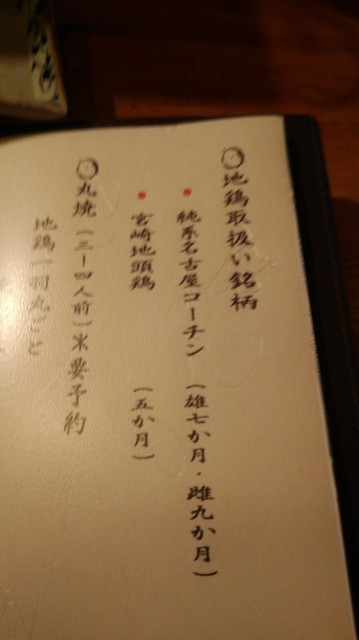 地鶏取扱い銘柄
純系名古屋コーチン（雄七か月・雌九か月）
宮崎地頭鶏（五か月）
丸焼（三―四人前）※要予約
地鶏一羽丸ごと